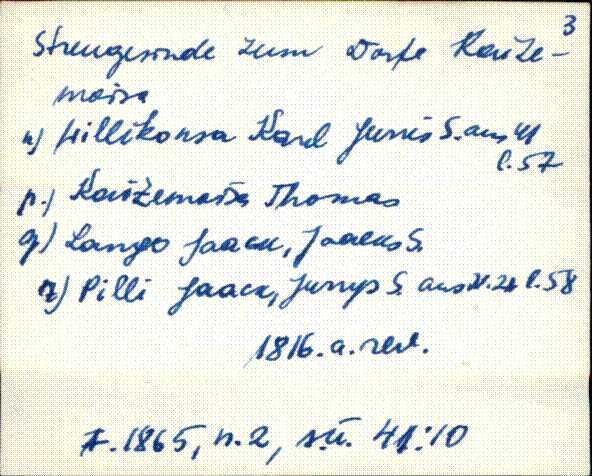 3
Streugesinde zum Dorfe Kauže-
moisa
n) Hillikonsa Karl Jurris S. aus 41
l. 57
p.) Kaužemoisa Thomas
q) Lango Jaack, Jaacks S.
r) Pilli Jaack, Jurrys S. aus N. 24 l. 58
1816. a. rev.
F. 1865, n. 2, sü. 41:10